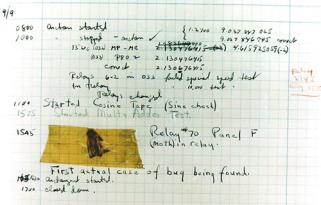 9/9
0800 antan started
1000 " stopped - antan ✓ { 1.2700 9.037 847 025
9.037 846 995 correct
13'' uc (032) MP-MC 2.130476415 (3) 4.615925059(-2)
(033) PRO 2 2.130476415
correct 2.130676415
Relays 6-2 in 033 failed special speed test
in relay " 10.000 test.
Relays changed
1100 Started Cosine Tape (Sine check)
1525 Started Multy Adder Test.
1545 Relay #70 Panel F
(moth) in relay.
First actual case of bug being found.
antangent started.
1700 closed down.